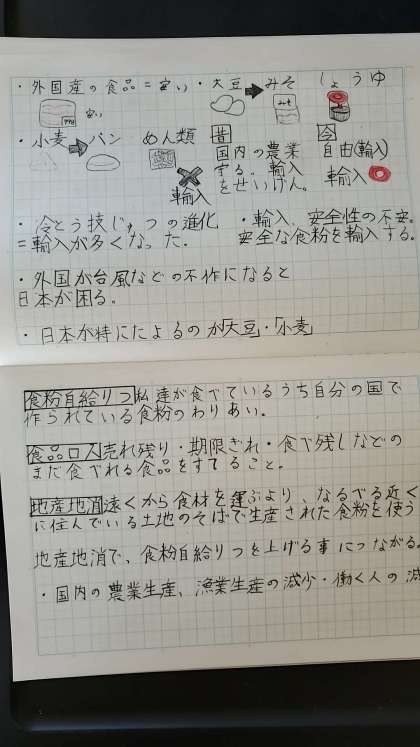 ・外国産の食品=安い ・大豆➡みそ しょうゆ
安い みそ
・小麦➡パン めん類 昔 今
国内の農業 自由(輸入)
する。輸入 輸入
をせいげん。
輸入
・冷とう技じゅつの進化 ・輸入、安全性の不安。
=輸入が多くなった。 安全な食粉を輸入する。
・外国が台風などの不作になると
日本が困る。
・日本が特にたよるのが「大豆」・「小麦」
食粉自給りつ 私達が食べているうち自分の国で
作られている食粉のわりあい。
食品ロス 売れ残り・期限ぎれ・食べ残しなどの
まだ食べれる食品をすてること。
地産地消 遠くから食材を運ぶより、なるべる近く
に住んでいる土地のそばで生産された食粉を使う
地産地消で、食粉自給りつを上げる事につながる。
・国内の農業生産、漁業生産の減少・働く人の減